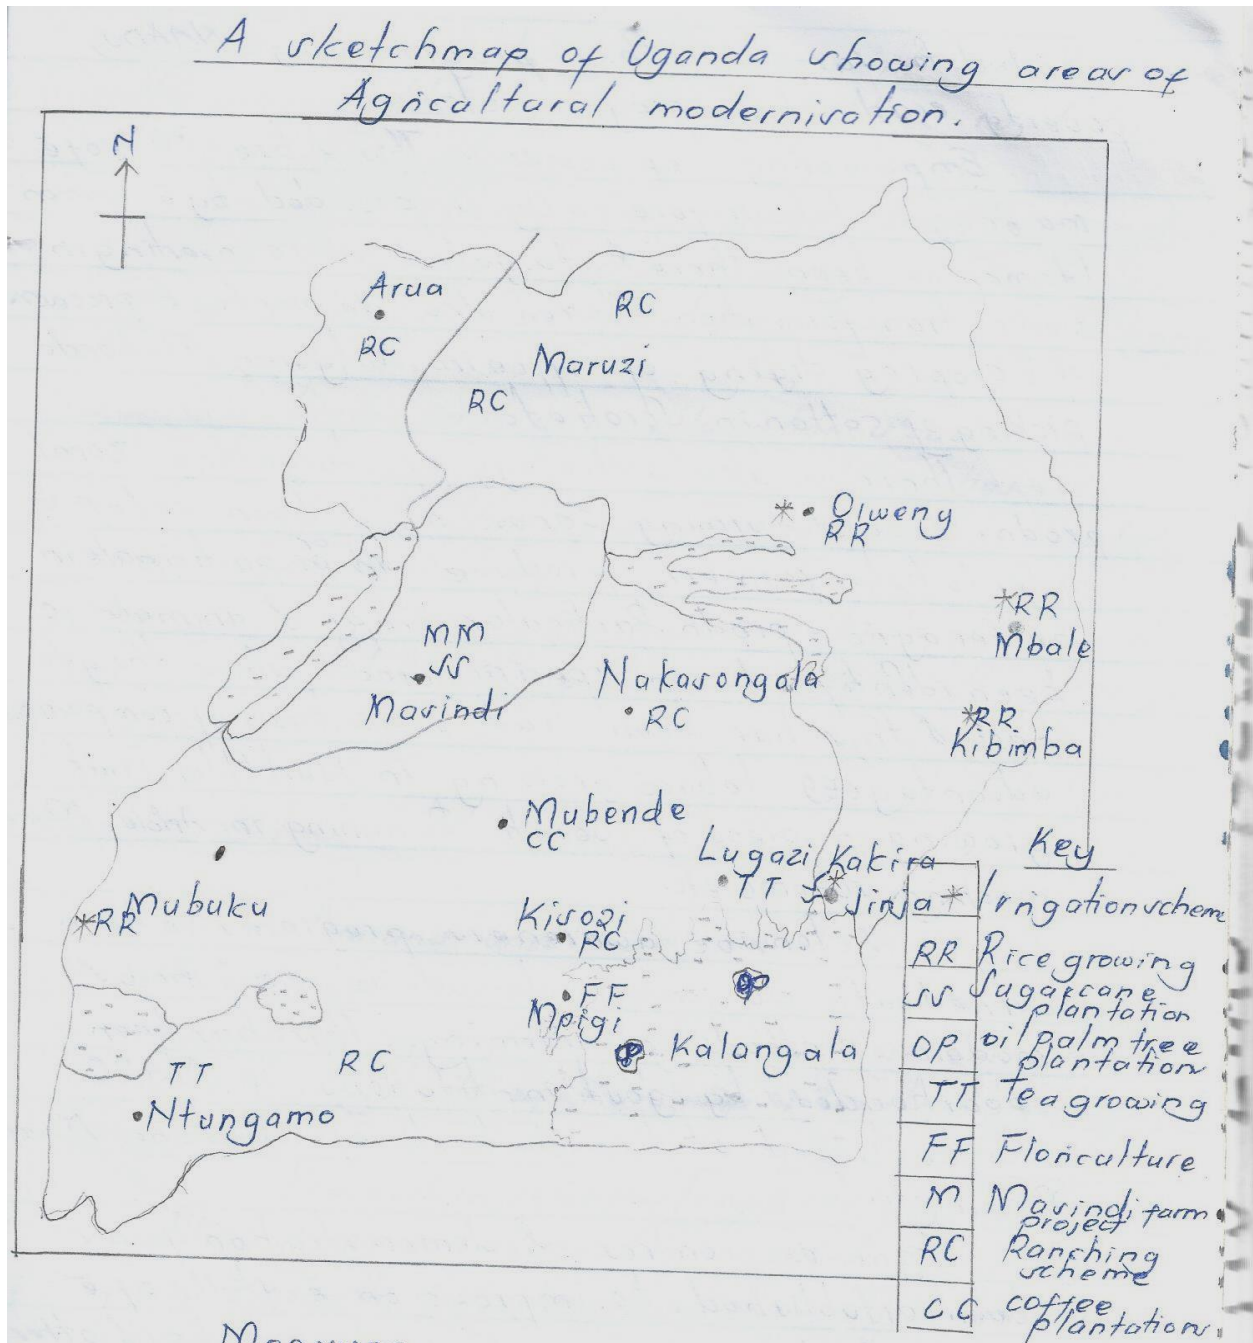 A sketchmap of Uganda showing areas of
Agricultural modernisation.
N
Arua
RC
RC
Maruzi
RC
* Olweny
RR
*RR
Mbale
MM
SS
Masindi
Nakasongola
RC
*RR
Kibimba
Mubende
CC
Lugazi Kakira
TT S *
Jinja
Mubuku
*RR
Kisozi
RC
FF
Mpigi
OP
OP
Kalangala
TT
RC
Ntungamo
Key
* Irrigation scheme
RR Rice growing
SS Sugarcane
plantation
OP oil palm tree
plantation
TT Tea growing
FF Floriculture
M Masindi farm
project
RC Ranching
scheme
CC coffee
plantations